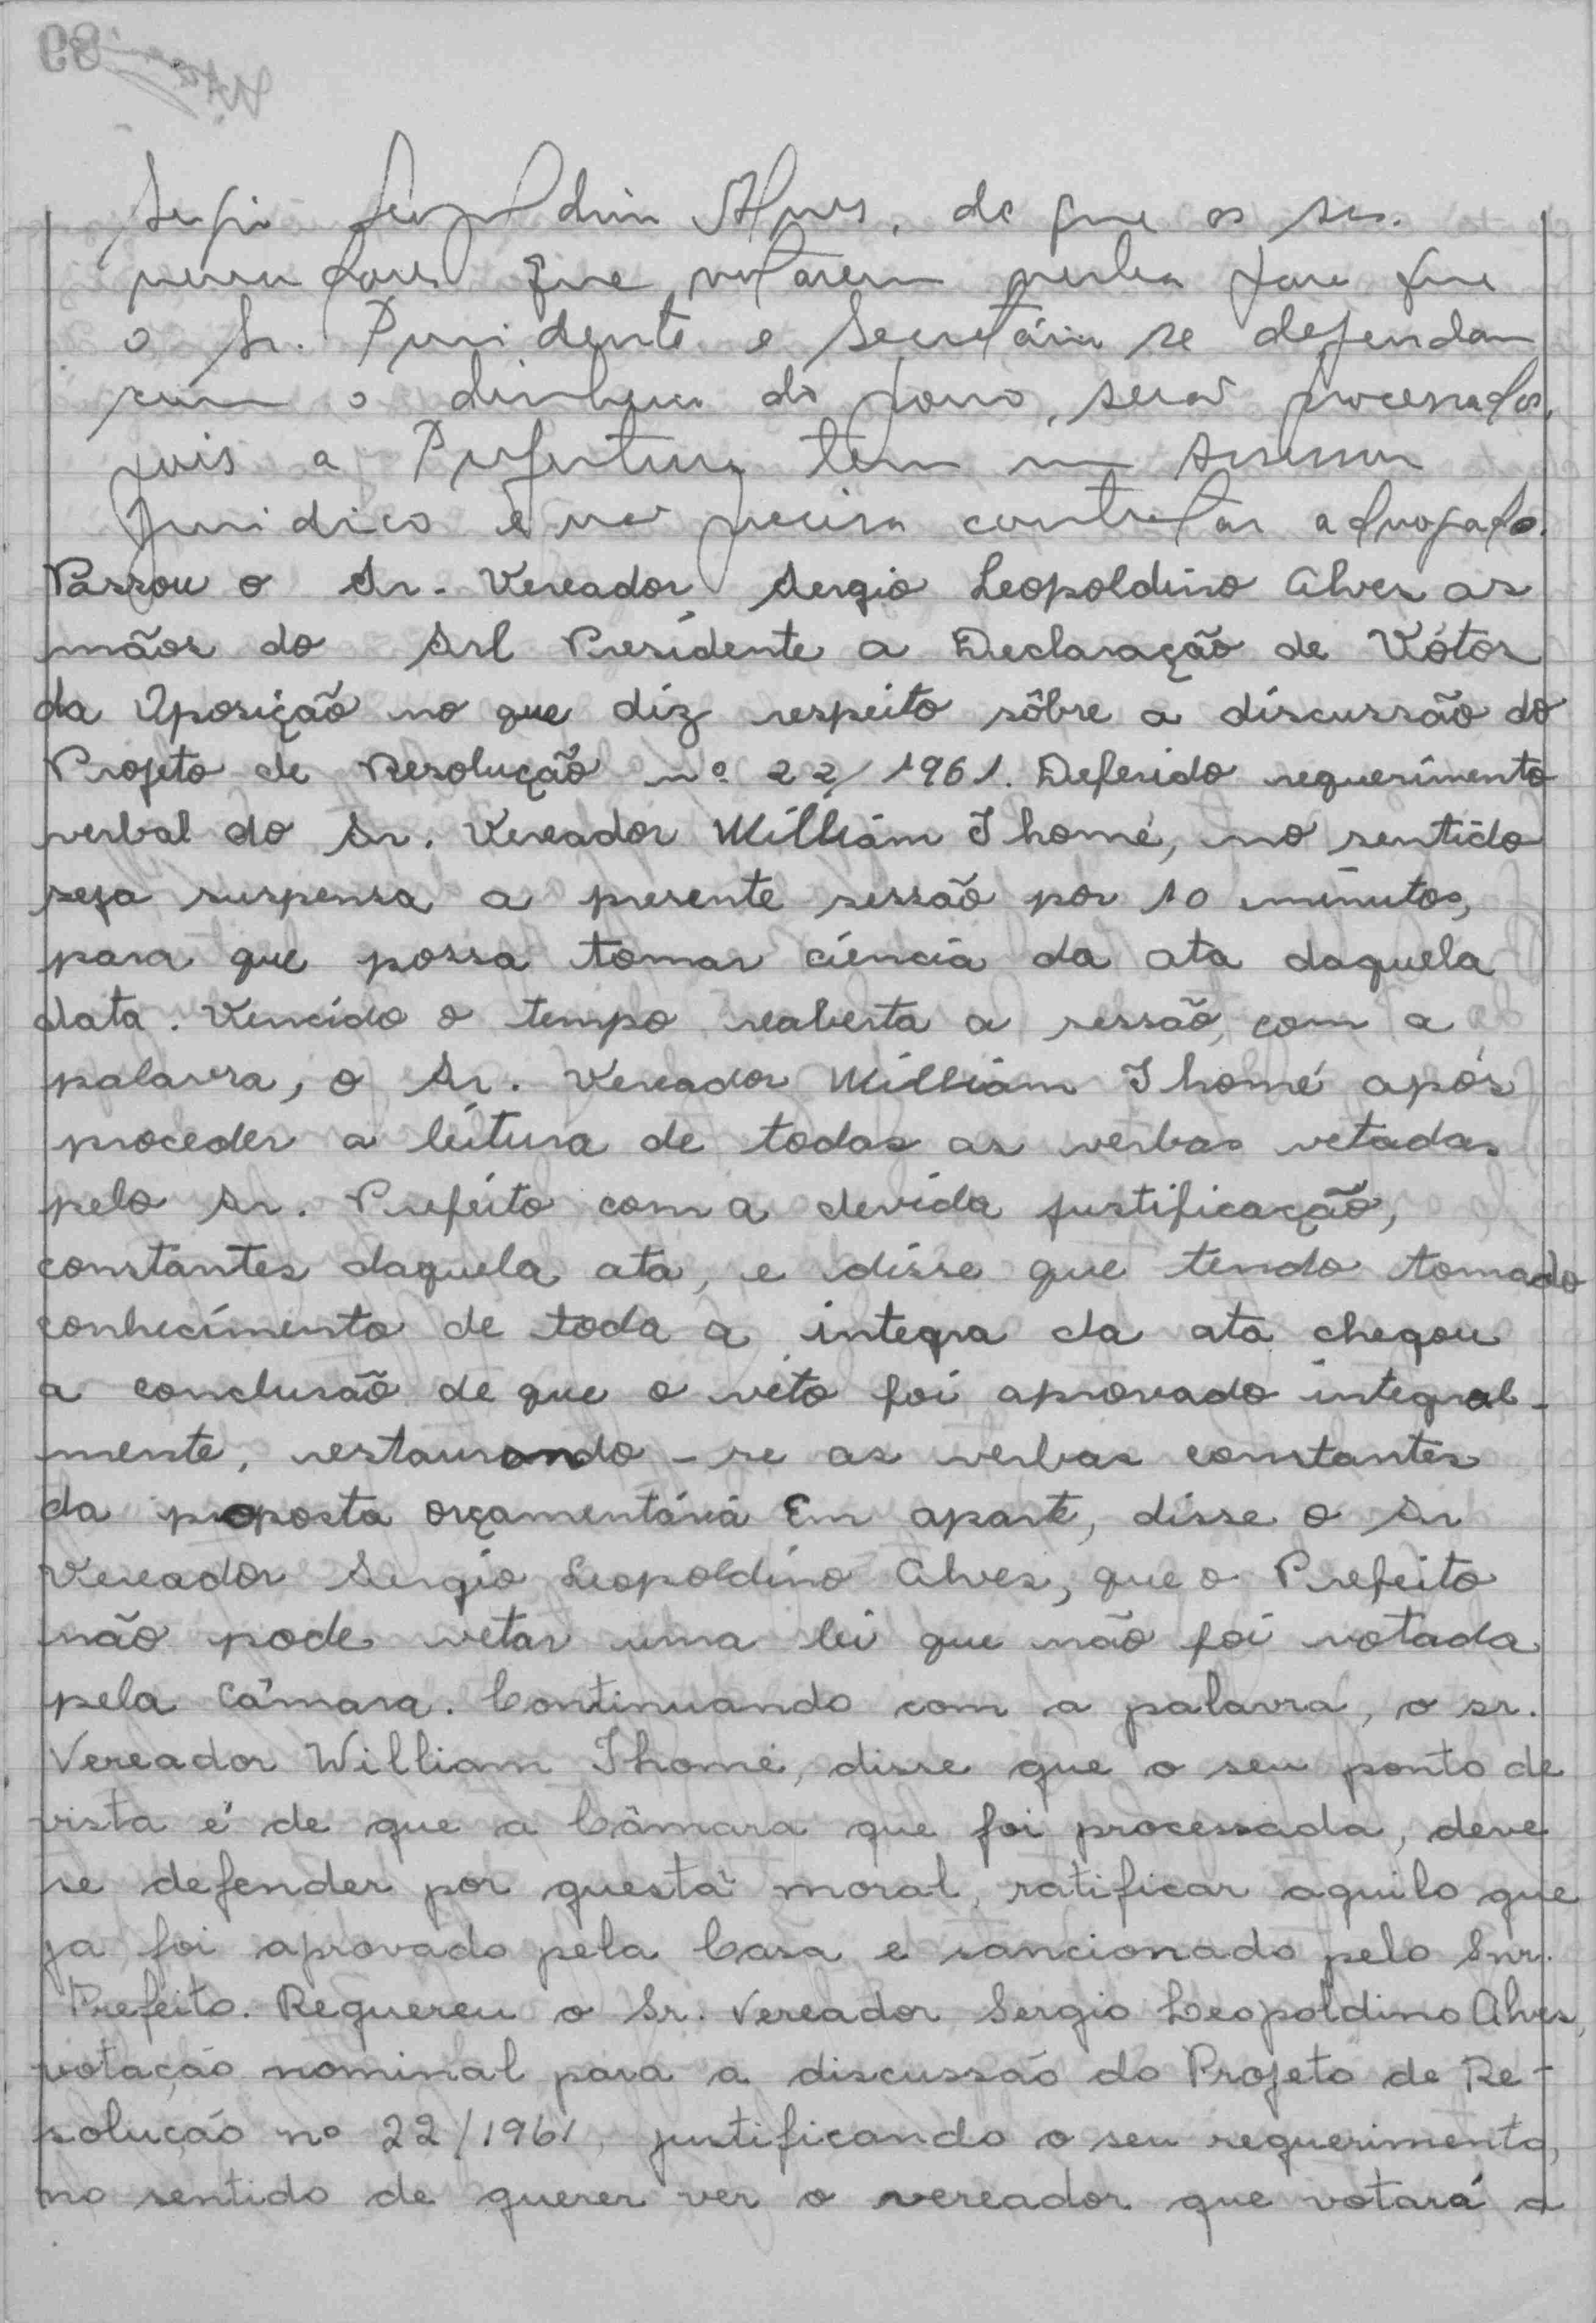 Sergio Leopoldino Alves, de que os srs.
vereadores que votarem verba para que
o Sr. Presidente e Secretário se defendam
com o dinheiro do povo, serão processados,
pois a Prefeitura tem um assessor
Juridico e não precisa contratar advogado.
Passou o Sr. Vereador Sergio Leopoldino Alves as
mãos do Srl Presidente a Declaração de Vótos
da Oposição no que diz respeito sôbre a discussão do
Projeto de Resolução nº 22/1961. Deferido requerimento
verbal do Sr. Vereador William Thomé, no sentido
seja suspensa a presente sessão por 10 minutos,
para que possa tomar ciência da ata daquela
data. Vencido o tempo reaberta a sessão, com a
palavra, o Sr. Vereador William Thomé após
proceder a leitura de todas as verbas vetadas
pelo Sr. Prefeito com a devida justificação,
constantes daquela ata, e disse que tendo tomado
conhecimento de toda a integra da ata chegou
a conclusão de que o véto foi aprovado integral-
mente, restaurando-se as verbas constantes
da proposta orçamentária Em aparte, disse o Sr
Vereador Sergio Leopoldino Alves, que o Prefeito
não pode vetar uma lei que não foi votada
pela Câmara. Continuando com a palavra, o sr.
Vereador William Thomé, disse que o seu ponto de
vista é de que a Câmara que foi processada, deve
se defender por questã moral, ratificar aquilo que
ja foi aprovado pela Casa e sancionado pelo Snr.
Prefeito. Requereu o Sr. Vereador Sergio Leopoldino Alves,
votação nominal para a discussão do Projeto de Re-
solução nº 22/1961, justificando o seu requerimento,
no sentido de querer ver o vereador que votará a